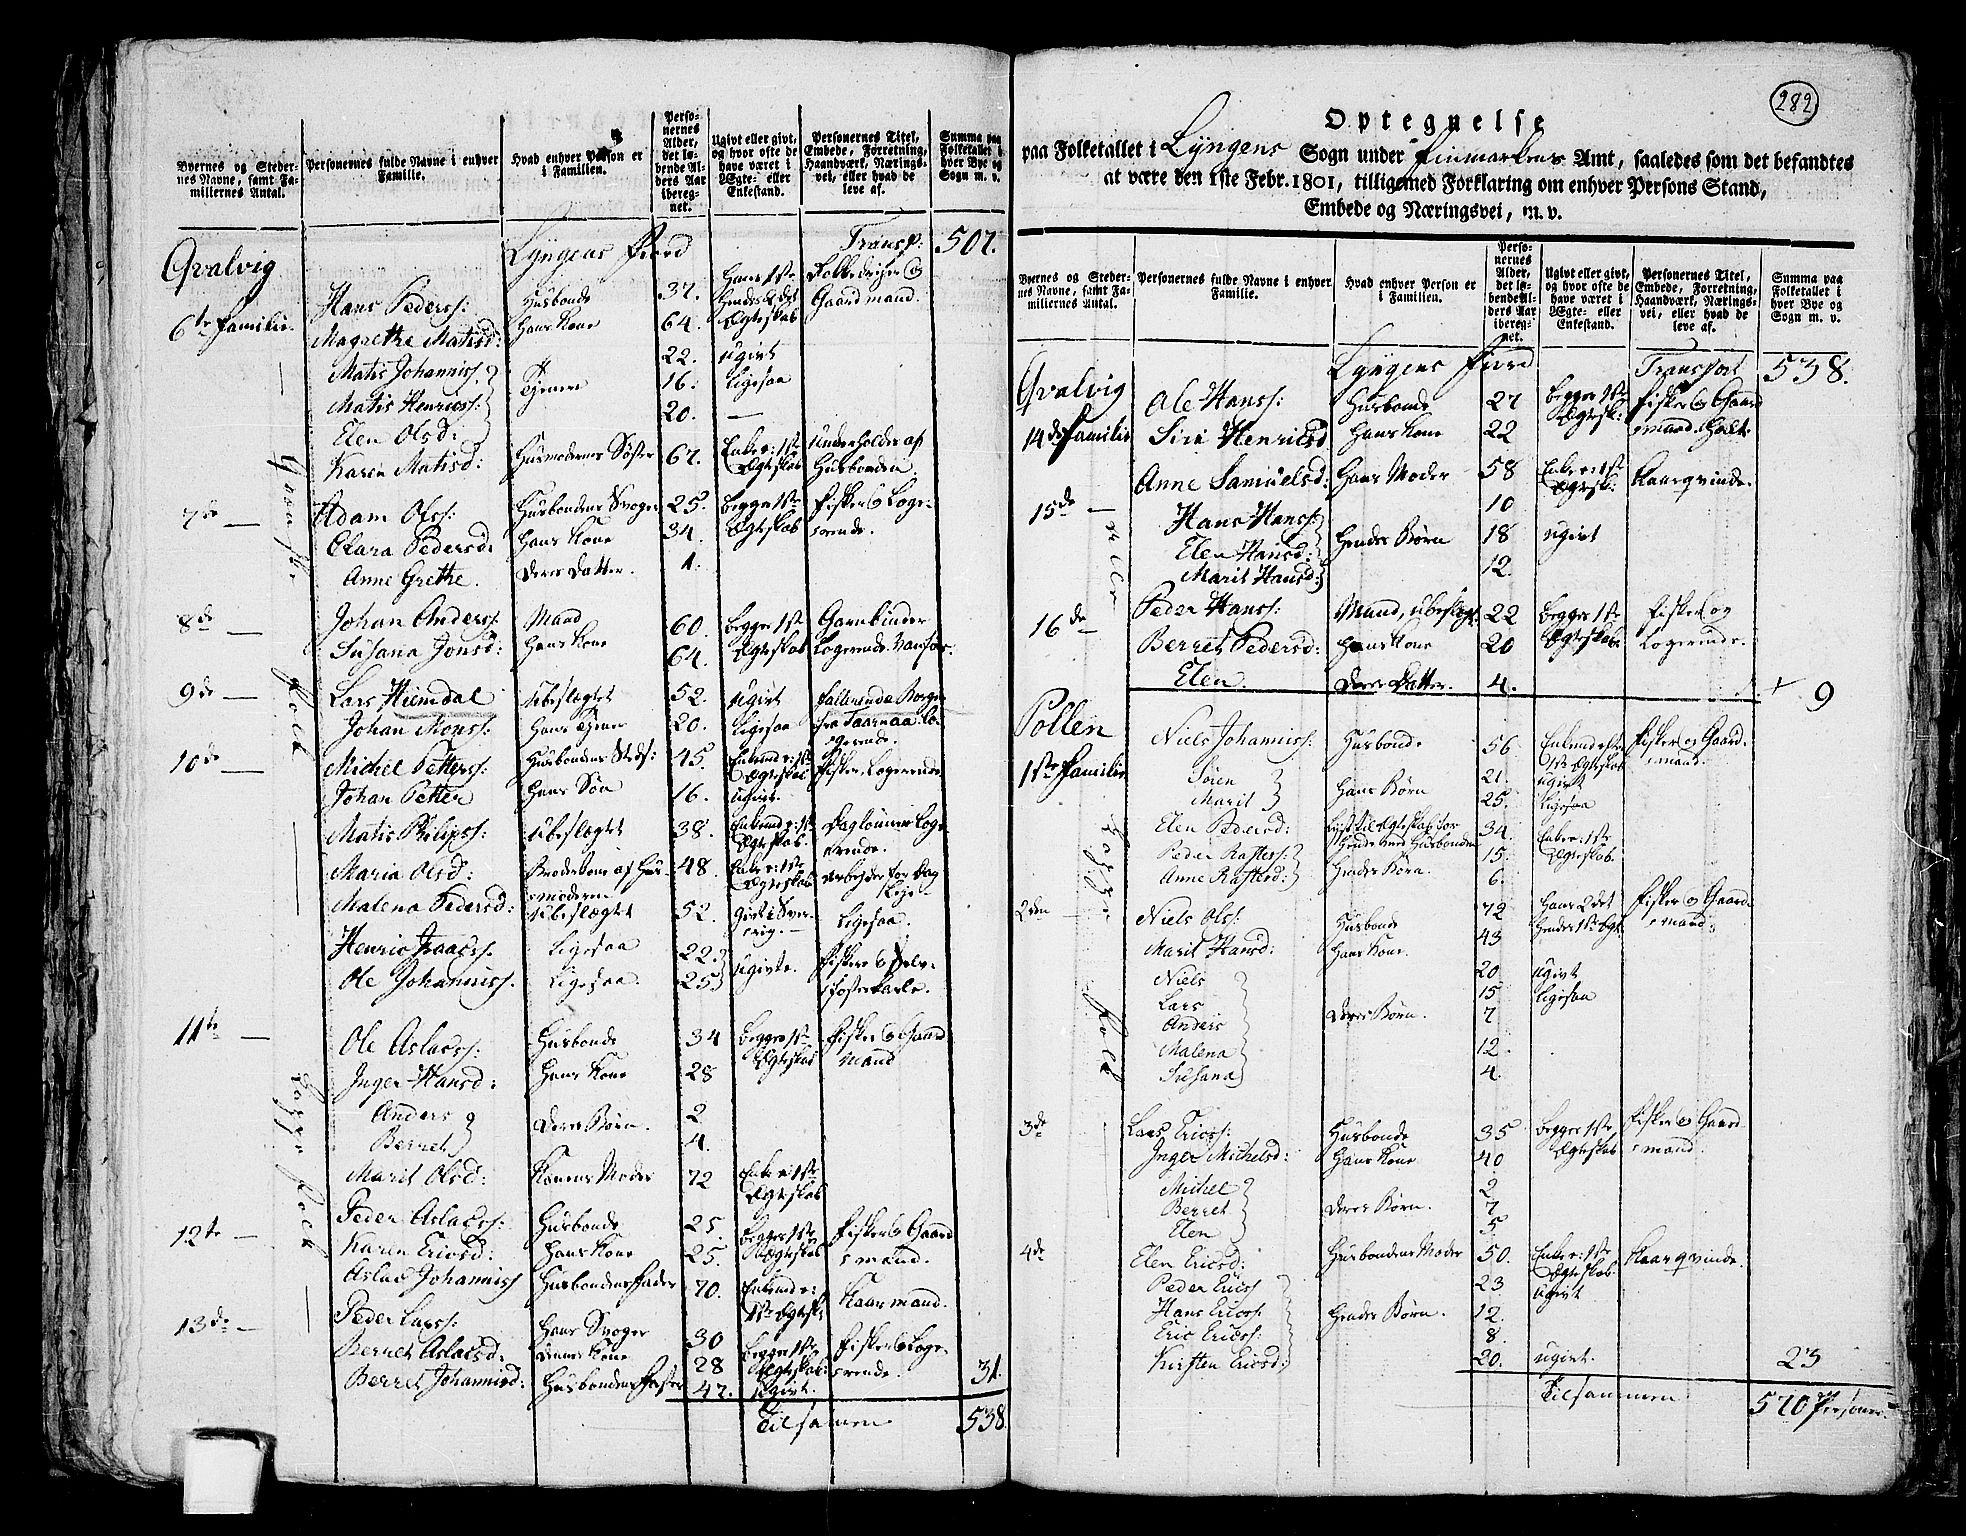 Byernes og Steder-
nes Navne, samt Fa-
milliernes Antal.
Personernes fulde Navne i enhver
Familie.
Hvad enhver Person er
i Familien.
Perso-
nernes
Alder,
det lø-
bende Al-
ders Aar
iberegn-
net.
Ugivt eller givt,
og hvor ofte de
have været i
Ægte- eller
Enkestand.
Personernes Titel,
Embede, Forretning,
Haandværk, Nærings-
vei, eller hvad de
leve af.
Summa paa
Folketallet i
hver Bye og
Sogn m. v.
Lyngens Fiord Transp: 507.
Qvalvig
6te Familie. Hans Peders: Husbonde 37. Hans 1ste Gaardmand.
Magrethe Matisd: Hans Kone 64. Ægteskab
Matis Johanniss. 22. ugivt
Matis Henricss: Tjenere 16. ligesaa
Elen Olsd: 20. —
Karen Matisd: Husmoderens Søster 67. Enke e: 1ste Ægteskab underholdes af Husbonden.
7de — Adam Olss: Husbondens Svoger 25. begge 1ste Ægteskab fisker & Loge-
rende.
Clara Pedersd: Hans Kone 34.
Anne Grethe. deres Datter. 1.
8de — Johan Anderss. Mand 60. begge 1ste Ægteskab Garnbinder
Susana Jonsd: Hans Kone 64. Logerende
9de — Lars Hiemdal ubeslægtet 52. ugivt
Johan Monss: Hans Tjener 20. ligesaa
10de — Michel Petterss: Husbondens 45. Enkemd e: 1ste Ægteskab fisker, Logerende
Johan Petter Hans Søn 16. ugivt.
Matis Philipss: ubeslægtet 38. Enkemd e: 1ste Ægteskab. Daglønner Loge-
rende.
Maria Olsd: 48. Enke e: 1ste Ægteskab arbejder for Dag
Malena Pedersd: ubeslægtet 52. ligesaa.
Henric Isaacss. ligesaa 22.
Ole Johanniss. ligesaa. 25. ugivte.
11te — Ole Aslacss: Husbonde 34 begge 1ste Ægteskab fisker & Gaard
mand
Inger Hansd: Hans Kone 28
Anders 2
Berret deres Børn. 4.
Marit Olsd: Konens Moder 72 Enke e: 1ste Ægteskab
12te — Peder Aslacss: Husbonde 25. begge 1ste Ægteskab fisker & Gaard
mand.
Karen Ericsd: Hans Kone 25.
Aslac Johanniss Husbondens Fader 70. Enkemd e: 1ste Ægtesk: Kaarmand.
13de — Peder Larss: Hans Svoger 30 begge 1ste Ægteskab. fisker & Loge-
rende.
Berret Aslacsd: dennes Kone 28
Berret Johannisd: Husbondens Faster 47. ugivt. 31.
Tilsamen 538.
282
Optegnelse
paa Folketallet i Lyngens Sogn under Finmarkens Amt, saaledes som det befandtes
at være den 1ste Febr. 1801, tilligemed Forklaring om enhver Persons Stand,
Embede og Næringsvei, m. v.
Byernes og Steder-
nes Navne, samt Fa-
milliernes Antal.
Personernes fulde Navne i enhver
Familie.
Hvad enhver Person er
i Familien.
Perso-
nernes
Alder,
det lø-
bende Al-
ders Aar
iberegn-
net.
Ugivt eller givt,
og hvor ofte de
have været i
Ægte- eller
Enkestand.
Personernes Titel,
Embede, Forretning,
Haandværk, Nærings-
vei, eller hvad de
leve af.
Summa paa
Folketallet i
hver Bye og
Sogn m. v.
Lyngens Fiord Transport 538.
Qvalvig
14de Familie Ole Hanss: Husbonde 27 begge 1ste Ægtesk: fisker & Gaard
mand
Siri Henricsd Hans Kone 22
15de — Anne Samuelsd: Hans Moder 58 Enke e: 1ste Ægtesk: Kaarqvinde.
Hans Hanss: 10
Elen Hansd: Hendes Børn 18 ugivt
Marit Hansd: 12.
16de — Peder Hanss: Mand, ubeslægt: 22 begge 1ste Ægteskab fisker og
Logerende.
Berret Pedersd: Hans Kone 20
Elen. deres Datter. 4. 9
Pollen
1ste Familie. Niels Johanniss: Husbonde 56 Enkemd efter 1ste Ægteskab fisker og Gaard-
mand.
Sören 21. ugivt
Marit Hans Børn 25. ligesaa
Elen Pedersd: 34. Enke e: 1ste Ægteskab.
Peder Rasterss: 15
Anne Rastersd: Hendes Børn. 6.
2den Niels Olss: Husbonde 72 Hans 2det fisker & Gaard-
mand.
Marit Hansd: Hans Kone. 43 Hendes 1ste Ægt.
Niels 20 ugivt
Lars 15 ligesaa
Anders deres Børn. 7
Malena 12.
Susana 4.
3de Lars Ericss: Husbonde 35 begge 1ste Ægteskab fisker & Gaard
mand.
Inger Michelsd: Hans Kone 40
Michel 2
Berret deres Børn. 7
Elen 5
4de Elen Ericsd: Husbondens Moder 50. Enke e: 1ste Ægteskab. Kaarqvinde.
Peder Ericss 23. ugivt
Hans Ericss: Hendes Børn. 12.
Eric Ericss: 8.
Kirsten Ericsd: 20. ugivt. 23
Tilsammen 570 Personer.